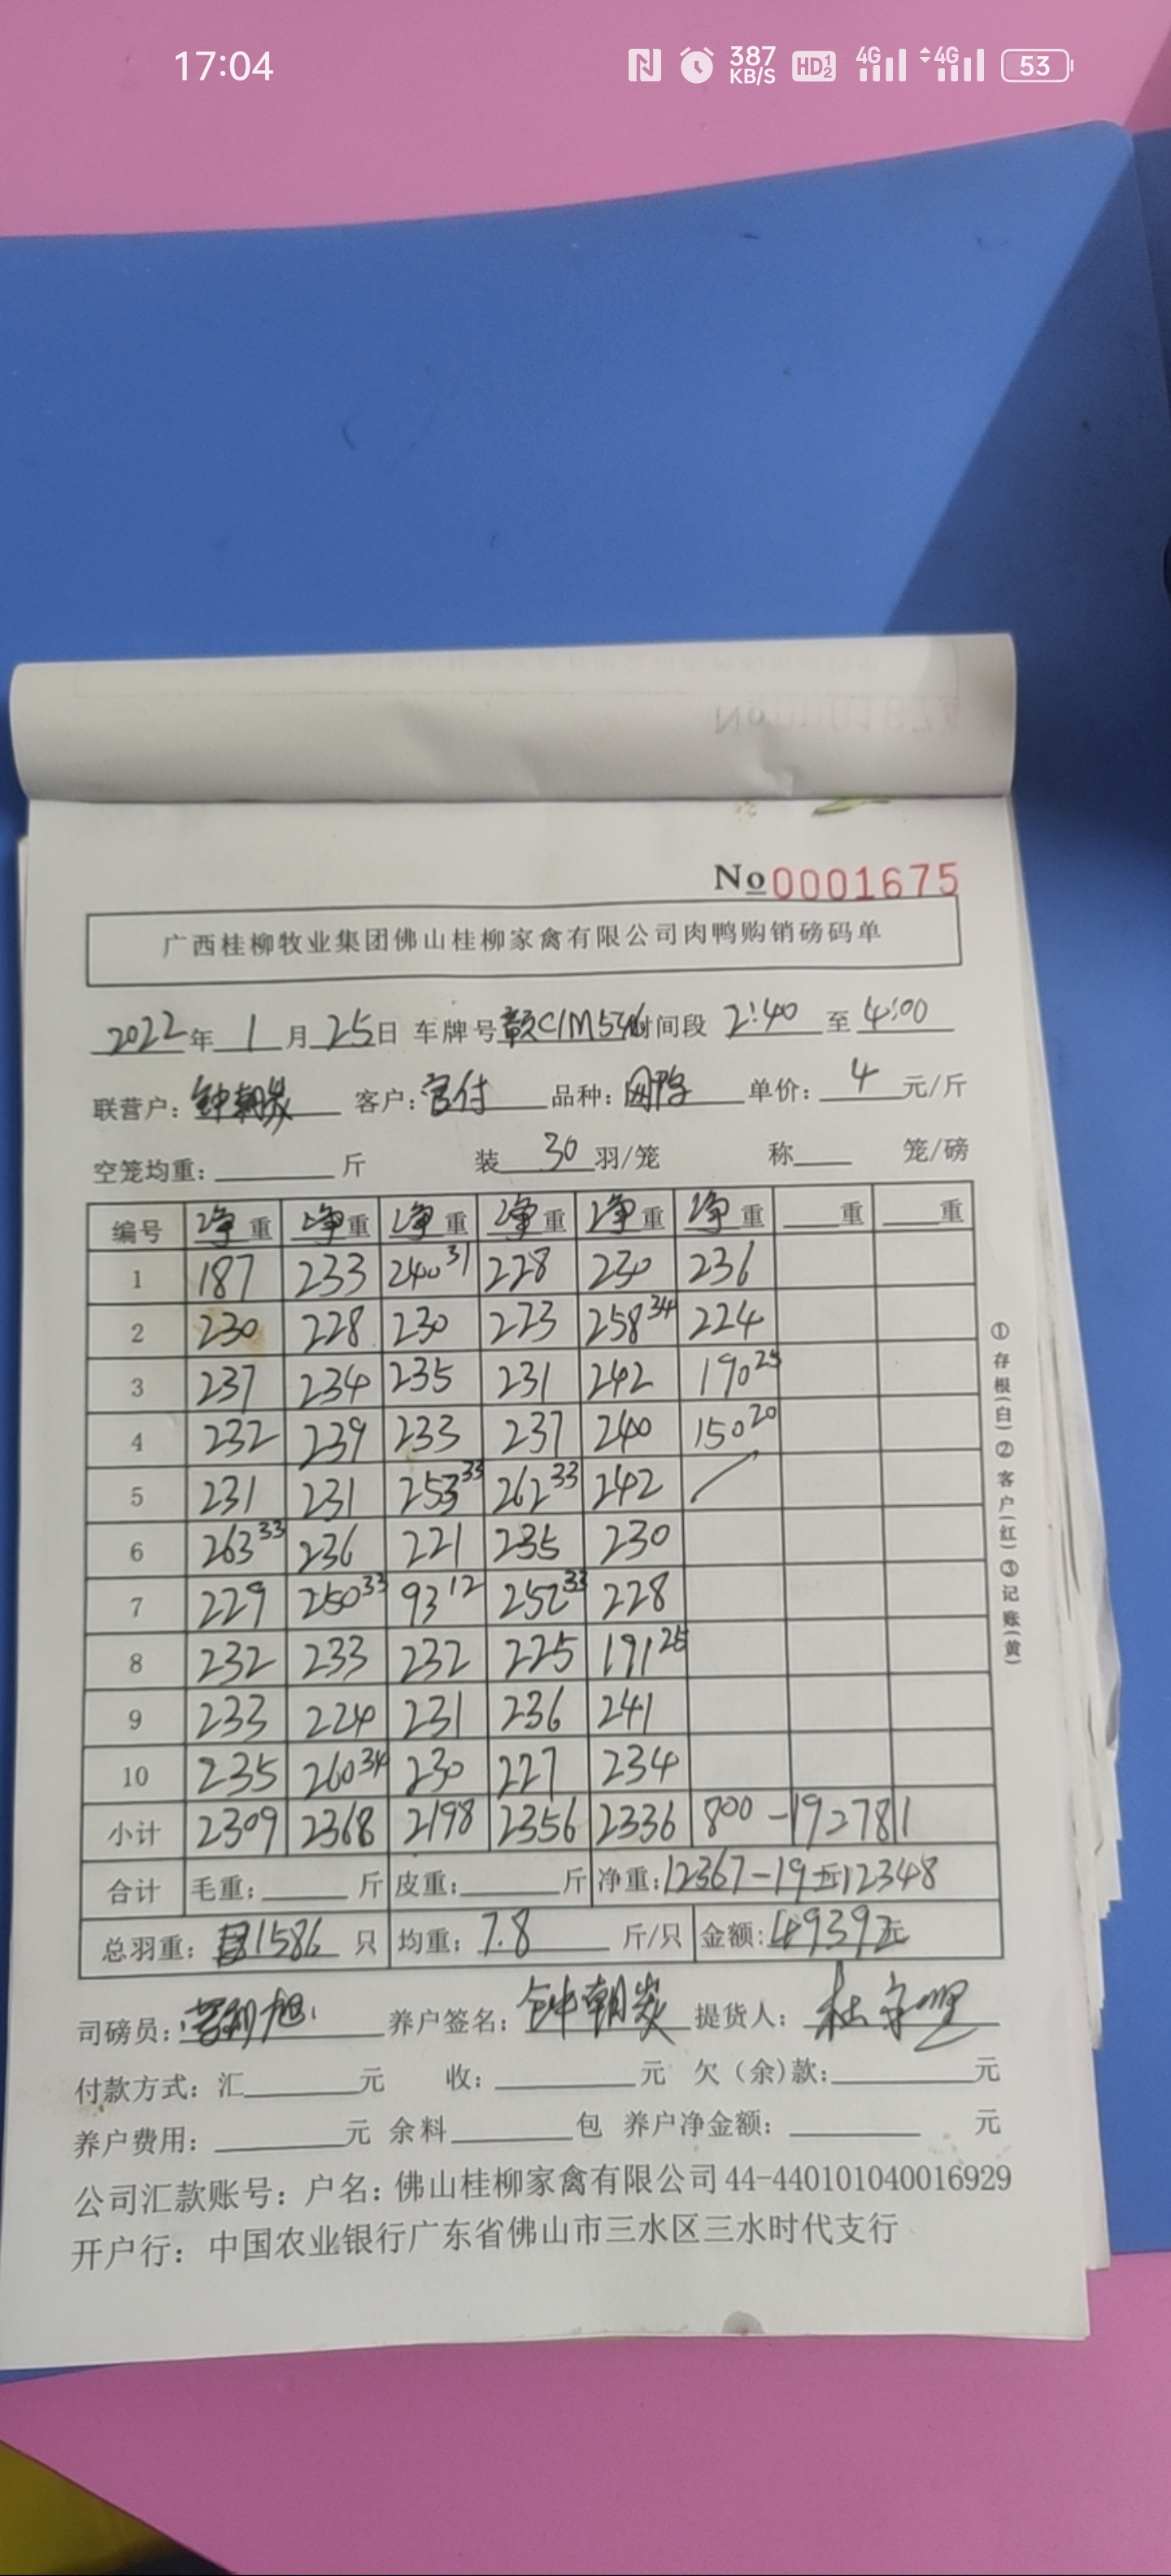 17:04 387 KB/S HD 1 2 4G 4G 53
No 0001675
广西桂柳牧业集团佛山桂柳家禽有限公司肉鸭购销磅码单
2022年 1 月 25日 车牌号赣C1M546时间段 2:40 至 4:00
联营户: 钟朝炭 客户: 官付 品种: 肉鸭 单价: 4 元/斤
空笼均重: 斤 装 30 羽/笼 称 笼/磅
编号 净重 净重 净重 净重 净重 净重 重 重
1 187 233 240 31 228 230 236
2 230 228 230 223 258 34 224
3 237 234 235 231 242 190 25
4 232 239 233 237 240 150 20
5 231 231 253 33 262 33 242
6 263 33 236 221 235 230
7 229 250 33 93 12 252 33 228
8 232 233 232 225 191 25
9 233 224 231 236 241
10 235 260 34 230 227 234
小计 2309 2368 2198 2356 2336 800 -19
合计 毛重: 斤 皮重: 斤 净重: 12367-19 12348
总羽重: 1586 只 均重: 7.8 斤/只 金额: 49392元
司磅员: 养户签名: 钟朝炭 提货人:
付款方式: 汇 元 收: 元 欠(余)款: 元
养户费用: 元 余料 包 养户净金额: 元
公司汇款账号: 户名: 佛山桂柳家禽有限公司 44-440101040016929
开户行: 中国农业银行广东省佛山市三水区三水时代支行
①存根(白)②客户(红)③记账(黄)